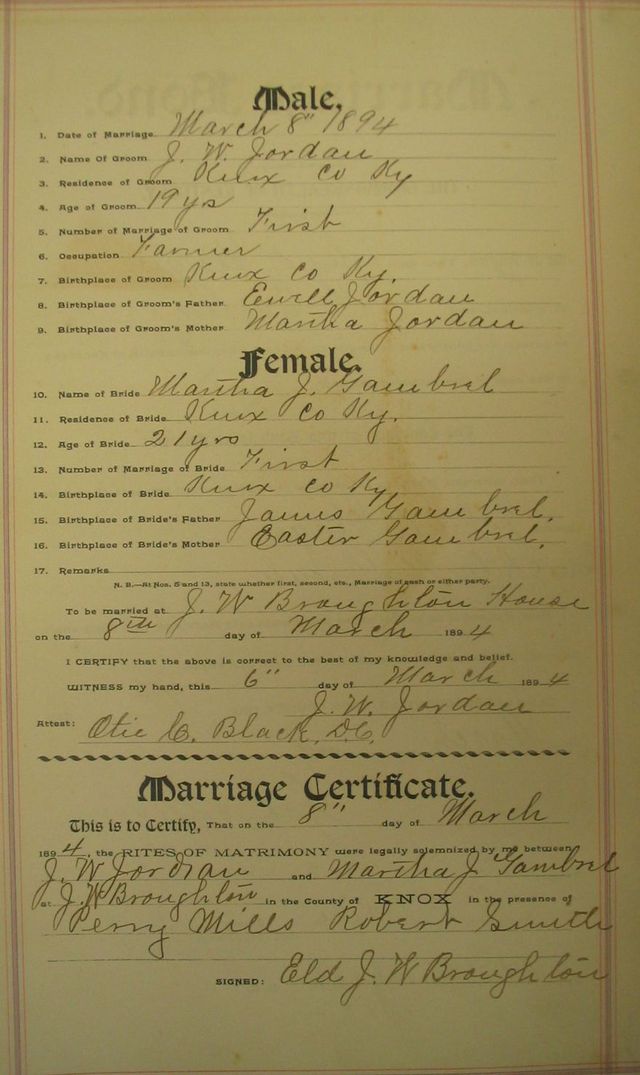 Male,
1. Date of Marriage March 8" 1894
2. Name Of Groom J. W. Jordan
3. Residence of Groom Knox Co Ky
4. Age of Groom 19 yrs
5. Number of Marriage of Groom First
6. Occupation Farmer
7. Birthplace of Groom Knox Co Ky.
8. Birthplace of Groom's Father Ewell Jordan
9. Birthplace of Groom's Mother Martha Jordan
Female.
10. Name of Bride Martha J. Gambrel
11. Residence of Bride Knox Co Ky.
12. Age of Bride 21 yrs
13. Number of Marriage of Bride First
14. Birthplace of Bride Knox Co Ky
15. Birthplace of Bride's Father James Gambrel.
16. Birthplace of Bride's Mother Easter Gambrel.
17. Remarks
N. B.—At Nos. 5 and 13, state whether first, second, etc., Marriage of each or either party.
To be married at J. W Broughton House
on the 8th day of March 1894
I CERTIFY that the above is correct to the best of my knowledge and belief.
WITNESS my hand, this 6" day of March 1894
J. W. Jordan
Attest: Otie C. Black, D.C.
Marriage Certificate.
This is to Certify, That on the 8" day of March
1894, the RITES OF MATRIMONY were legally solemnized by me between
J. W Jordan and Martha J Gambrel
at J. W Broughton in the County of KNOX in the presence of
Perry Mills Robert Smith
SIGNED: Eld J. W Broughton